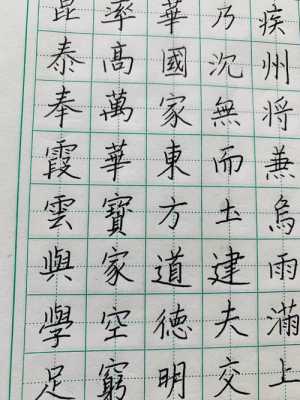 疾州将兼烏雨滿上
乃沉無而土建夫交
華國家東方道德明
率高萬華寶家空窮
昆泰奉霞雲與學足